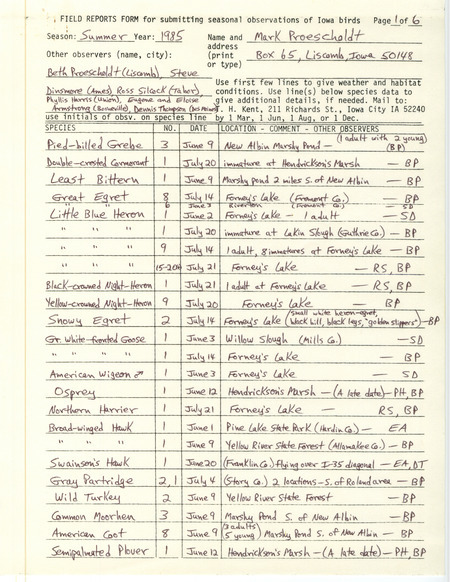 FIELD REPORTS FORM for submitting seasonal observations of Iowa birds Page 1 of 6
Season: Summer Year: 1985 Name and Mark Proescholdt
address
Other observers (name, city): (print Box 65, Liscomb, Iowa 50148
or type)
Beth Proescholdt (Liscomb), Steve
Dinsmore (Ames) Ross Silcock (Tabor),
Phyllis Harris (Union), Eugene and Eloise
Armstrong (Booneville), Dennis Thompson (Des Moines)
use initials of obsv. on species line
Use first few lines to give weather and habitat
conditions. Use line(s) below species data to
give additional details, if needed. Mail to:
T. H. Kent, 211 Richards St., Iowa City IA 52240
by 1 Mar, 1 Jun, 1 Aug, or 1 Dec.
SPECIES NO. DATE LOCATION - COMMENT - OTHER OBSERVERS
Pied-billed Grebe 3 June 9 New Albin Marshy Pond - (1 adult with 2 young) (BP)
Double-crested Cormorant 1 July 20 immature at Hendrickson's Marsh - BP
Least Bittern 1 June 9 Marshy pond 2 miles S. of New Albin - BP
Great Egret 8 July 14 Forney's Lake (Fremont Co.) - BP
6 June 3 Riverton (Fremont Co.) - SD
Little Blue Heron 1 June 2 Forney's Lake - 1 adult - SD
" " " 1 July 20 immature at Lakin Slough (Guthrie Co.) - BP
" " " 9 July 14 1 adult, 8 immatures at Forney's Lake - BP
15-20 July 21 Forney's Lake - RS, BP
Black-crowned Night-Heron 1 July 21 1 adult at Forney's Lake - RS, BP
Yellow-crowned Night-Heron 9 July 20 Forney's Lake - BP
Snowy Egret 2 July 14 Forney's Lake (small white heron-egret, black bill, black legs, "golden slippers") - BP
Gr. White-fronted Goose 1 June 3 Willow Slough (Mills Co.) - SD
" " " " 1 July 14 Forney's Lake - BP
American Wigeon ♂ 1 June 3 Forney's Lake - SD
Osprey 1 June 12 Hendrickson's Marsh - (A late date) - PH, BP
Northern Harrier 1 July 21 Forney's Lake - RS, BP
Broad-winged Hawk 1 June 1 Pine Lake State Park (Hardin Co.) - EA
" " " 1 June 9 Yellow River State Forest (Allamakee Co.) - BP
Swainson's Hawk 1 June 20 (Franklin Co.) flying over I-35 diagonal - EA, DT
Gray Partridge 2, 1 July 4 (Story Co.) 2 locations - S. of Roland area - BP
Wild Turkey 2 June 9 Yellow River State Forest - BP
Common Moorhen 3 June 9 Marshy Pond S. of New Albin - BP
American Coot 8 June 9 (3 adults 5 young) Marshy Pond S. of New Albin - BP
Semipalmated Plover 1 June 12 Hendrickson's Marsh - (A late date) - PH, BP